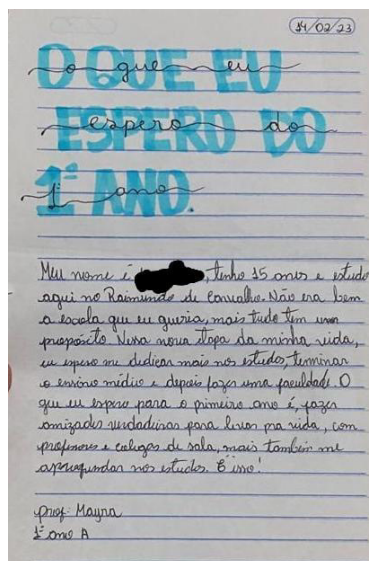 14/02/23
O QUE EU
o que eu
ESPERO DO
espero do
1º ANO.
1º ano
Meu nome é , tenho 15 anos e estudo
aqui no Raimundo de Carvalho. Não era bem
a escola que eu queria, mais tudo tem um
propósito. Nessa nova etapa da minha vida,
eu espero me dedicar mais nos estudos, terminar
o ensino médio e depois fazer uma faculdade. O
que eu espero para o primeiro ano é, fazer
amizades verdadeiras para levar pra vida, com
professores e colegas de sala, mais também me
aprofundar nos estudos. É isso!
prof: Mayra
1º ano A